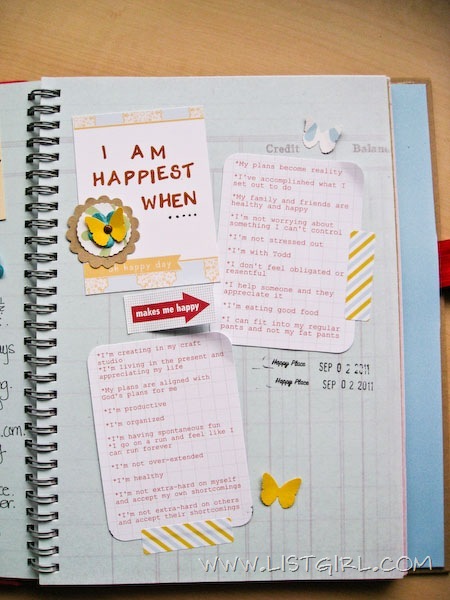 Credit
Balance
I AM
HAPPIEST
WHEN .....
happy day
makes me happy
*My plans become reality
*I've accomplished what I
set out to do
*My family and friends are
healthy and happy
*I'm not worrying about
something I can't control
*I'm not stressed out
*I'm with Todd
*I don't feel obligated or
resentful
*I help someone and they
appreciate it
*I'm eating good food
*I can fit into my regular
pants and not my fat pants
Happy Place SEP 02 2011
Happy Place SEP 02 2011
*I'm creating in my craft
studio
*I'm living in the present and
appreciating my life
*My plans are aligned with
God's plans for me
*I'm productive
*I'm organized
*I'm having spontaneous fun
*I go on a run and feel like I
can run forever
*I'm not over-extended
*I'm healthy
*I'm not extra-hard on myself
and accept my own shortcomings
*I'm not extra-hard on others
and accept their shortcomings
WWW.LISTGIRL.COM